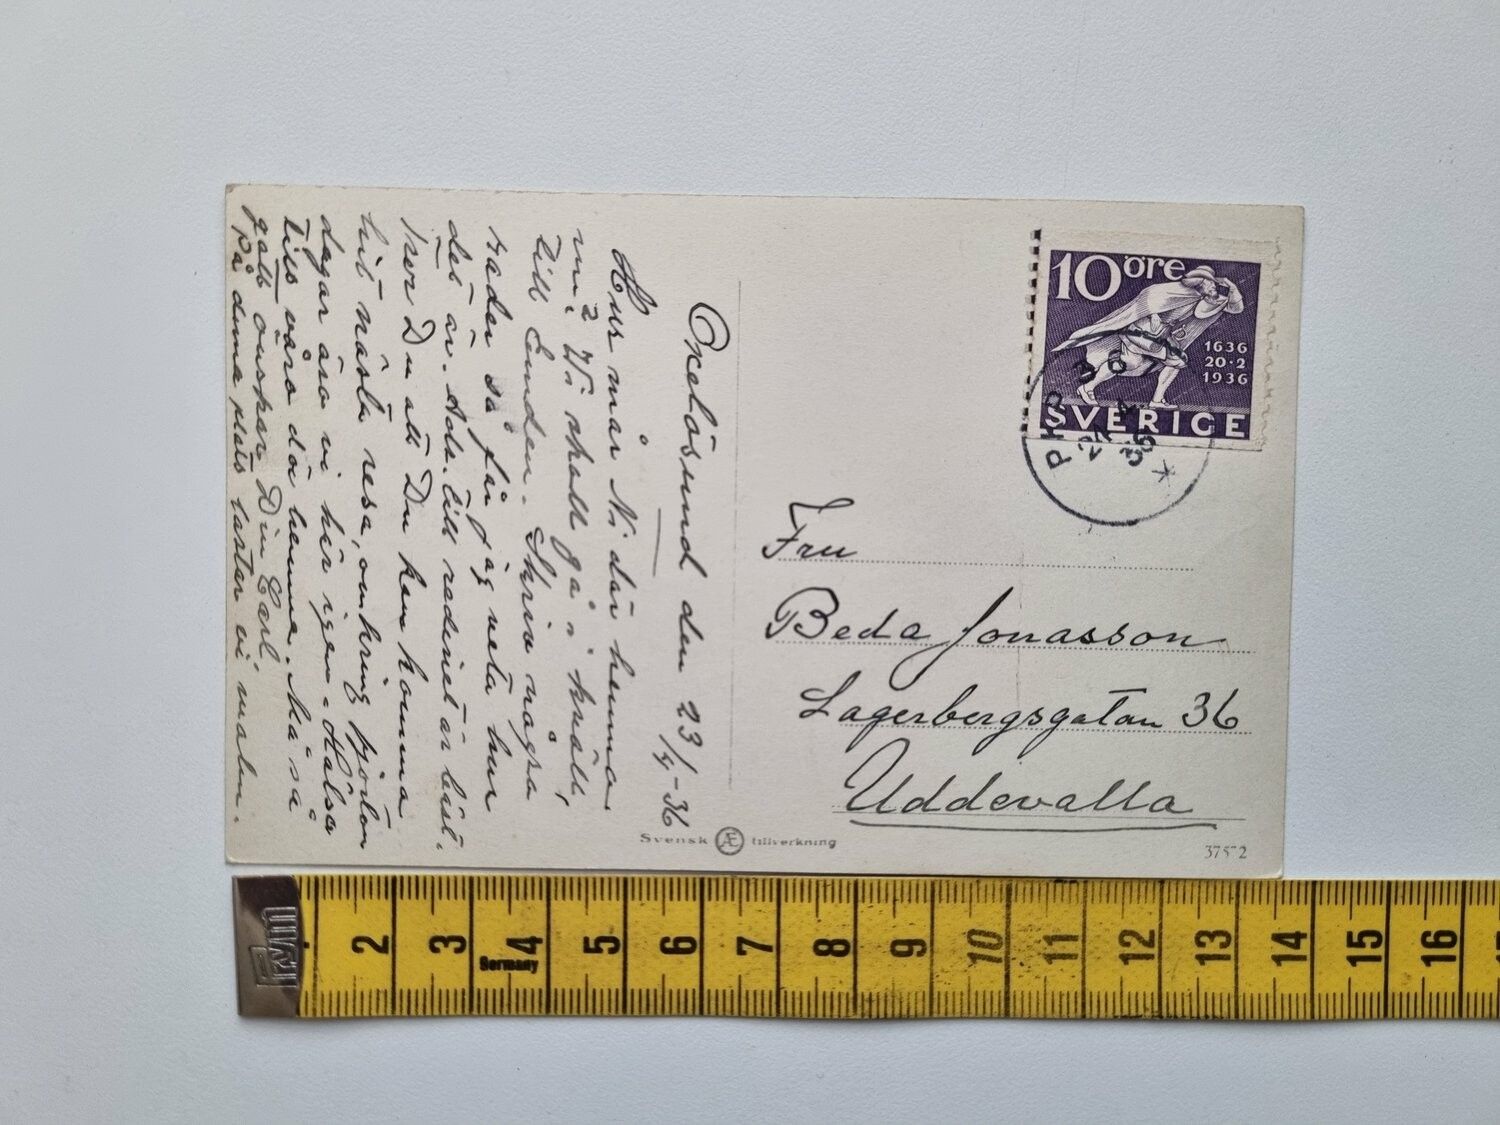 Oxelösund den 23/4-36
Hur mår Ni där hemma
nu? Vi skall gå i kväll,
till Emden. Skriv några
rader så får jag veta hur
det är. Adr. till rederiet är bäst.
Tror Du att Du kan komma
hit nästa resa, omkring fjorton
dagar äro vi här igen. Hälsa
till våra där hemma. Må så
gott önskar Din Carl.
På denna plats lastar vi malm.
10 öre
1636
20·2
1936
SVERIGE
PKP
24 4
36
Fru
Beda Jonasson
Lagerbergsgatan 36
Uddevalla
Svensk Æ tillverkning
2
3
4
Germany
5
6
7
8
9
10
11
12
13
14
15
16